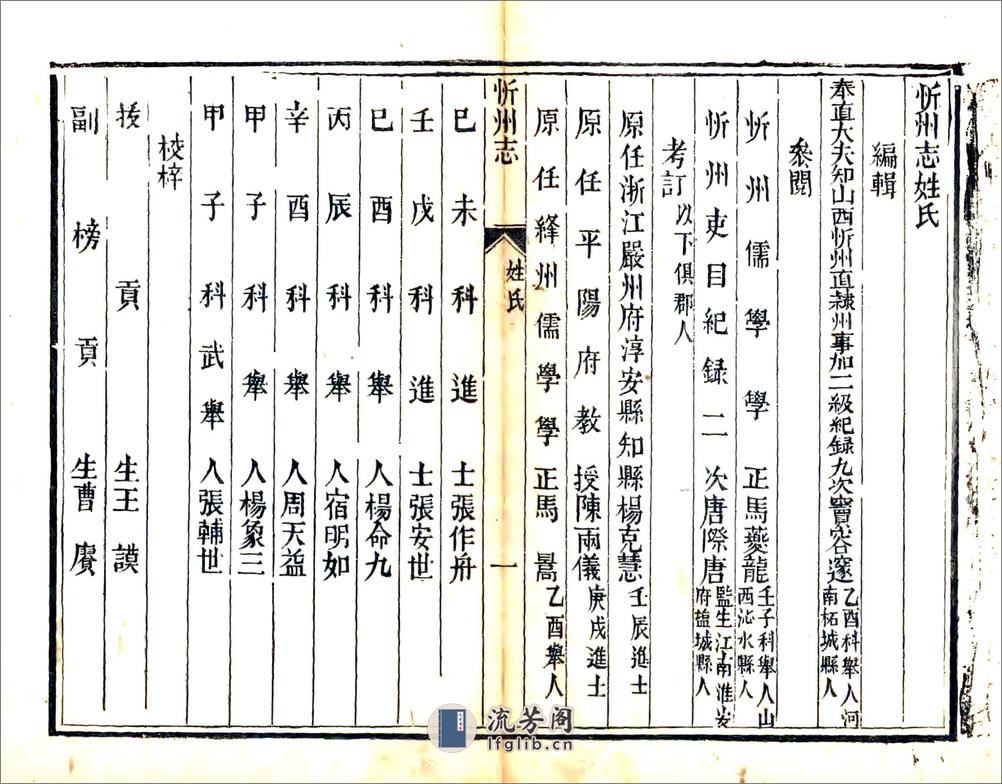 忻州志姓氏
編輯
奉直大夫知山西忻州直隸州事加二級紀録九次竇容邃乙酉科舉人河南柘城縣人
參閱
忻州儒學學正馬夔龍壬子科舉人山西沁水縣人
忻州吏目紀録二次唐際唐監生江南淮安府盐城縣人
考訂以下俱郡人
原任浙江嚴州府淳安縣知縣楊克慧壬辰進士
原任平陽府教授陳兩儀庚戌進士
原任絳州儒學學正馬暠乙酉舉人
忻州志 姓氏 一
己未科進士張作舟
壬戌科進士張安世
己酉科舉人楊命九
丙辰科舉人宿明如
辛酉科舉人周天益
甲子科舉人楊象三
甲子科武舉人張輔世
校梓
拔貢生王謨
副榜貢生曹賡
流芳阁
lfglib.cn